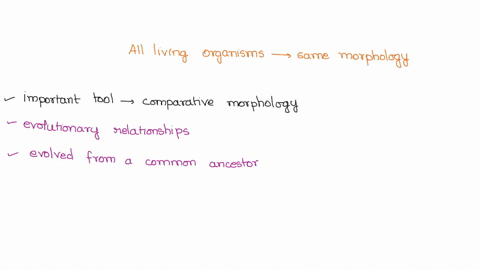 All living organisms → same morphology
✓ important tool → comparative morphology
✓ evolutionary relationships
✓ evolved from a common ancestor